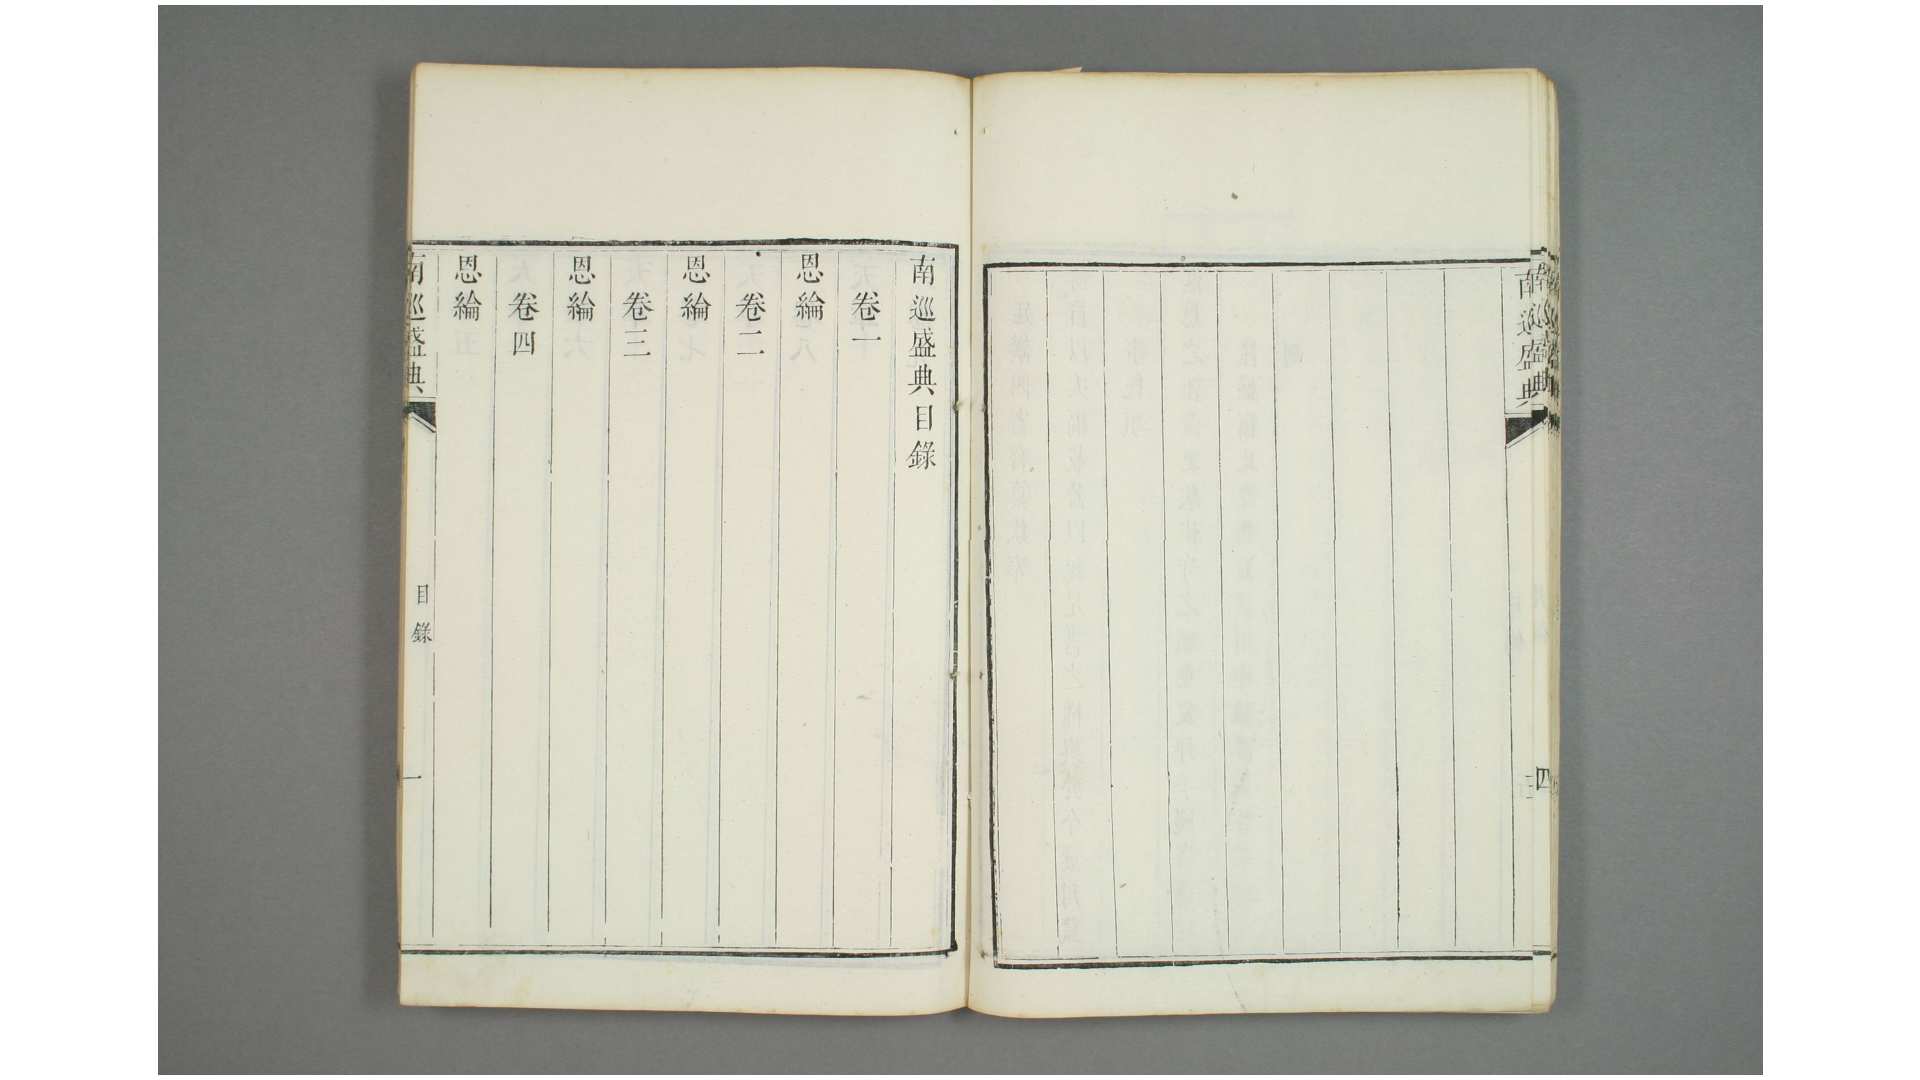 南巡盛典
四
南巡盛典目錄
卷一
恩綸
卷二
恩綸
卷三
恩綸
卷四
恩綸
南巡盛典
目錄
一